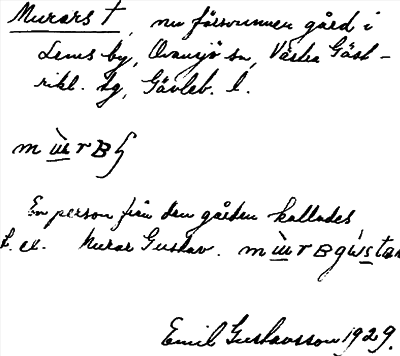 Murars †, nu försvunnen gård i
Lems by, Ovansjö sn, Västra Gäst-
rikl. tg, Gävleb. l.
En person från den gården kallades
t. ex. Murar Gustav.
Emil Gustavsson 1929.